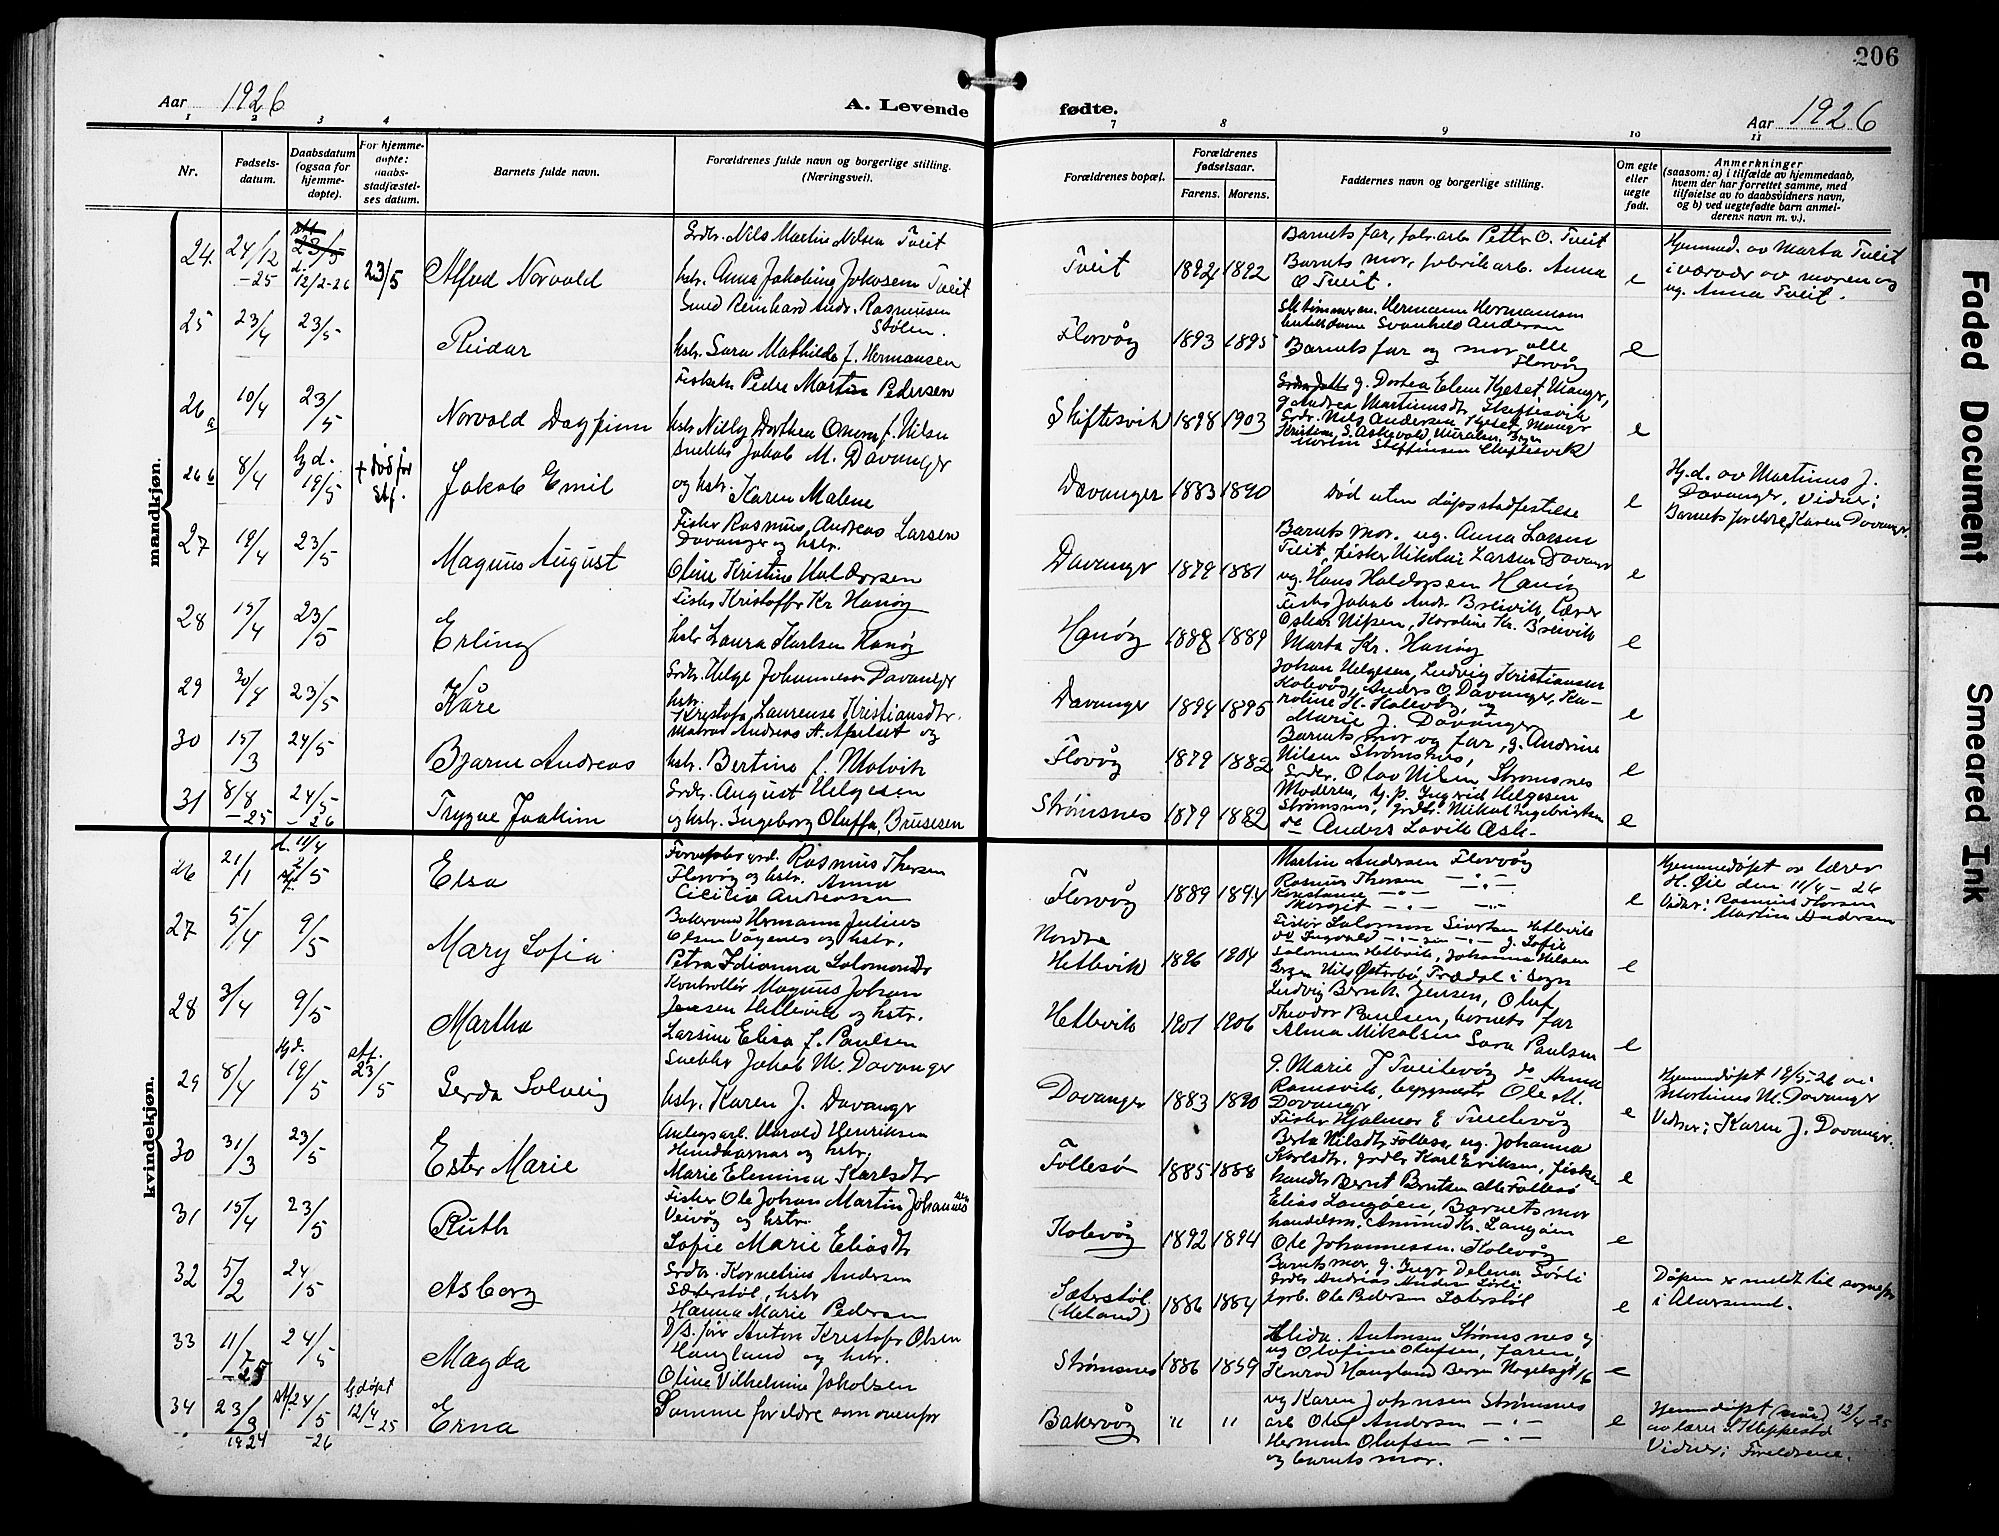 206
Aar 1926
A. Levende fødte.
Aar 1926
1 2 3 4 7 8 9 10 11
Nr.
Fødsels-
datum.
Daabsdatum
(ogsaa for
hjemme-
døpte).
For hjemme-
døpte:
daabs-
stadfæstel-
ses datum.
Barnets fulde navn.
Forældrenes fulde navn og borgerlige stilling.
(Næringsvei).
Forældrenes bopæl.
Forældrenes
fødselsaar.
Farens. Morens.
Faddernes navn og borgerlige stilling.
Om egte
eller
uegte
født.
Anmerkninger
(saasom: a) i tilfælde av hjemmedaab,
hvem der har forrettet samme, med
tilføielse av to daabsvidners navn,
og b) ved uegtefødte barn anmel-
derens navn m. v.).
mandkjøn.
24. 24/12 -25 d. 12/2-26 23/5 Alfred Norvald
Grdbr. Nils Martin Nilsen Tveit
hstr. Anna Jakobine Jakobsen Tveit
Tveit 1892 1892
Barnets far, fabr.arb. Petter O. Tveit
Barnets mor, fabrikarb. Anna
O Tveit.
e
Hjemmed. av Marta Tveit
i nærvær av moren og
ug. Anna Tveit.
25 23/4 23/5 Reidar
Smed Reinhard Andr. Rasmussen
Stølen.
hstr. Sara Mathilde f. Hermansen
Florvåg 1893 1895
Hermann Hermansen
Svanhild Andersen
Barnets far og mor alle
Florvåg
e
26 a 10/4 23/5 Norvald Dagfinn
Fisker Peder Martin Pedersen
hstr. Nilly Dorthea f. Nilsen
Skiftesvik 1898 1903
g. Dortea Elene Kjeset, Manger,
g. Andrea Martinusdtr. Skiftesvik
Grdbr. Nils Andersen Kjeset Manger
Martin Steffensen Skiftesvik
e
26 b 8/4 Hj d. 19/5 + død før stf. Jakob Emil
Snekker Jakob M. Davanger
og hstr. Karen Malene
Davanger 1883 1890
Død uten dåpsstadfestelse
e
Hj.d. av Martinus J.
Davanger, vidner:
Barnets foreldre, Karen Davanger
27 19/4 23/5 Magnus August
Fisker Rasmus Andreas Larsen
Davanger og hstr.
Oline Kristine Haldorsen
Davanger 1879 1881
Barnets mor. ug. Anna Larsen
Tveit, fisker Nikolai Larsen Davanger
ug. Hans Haldorsen Hanøy
e
28 15/4 23/5 Erling
Fisker Kristoffer Kr. Hanøy
hstr. Laura Karlsen Hanøy
Hanøy 1888 1889
Fisker Jakob Andr. Breivik, lærer
Oskar Nilsen, Karoline Kr. Breivik
Marta Kr. Hanøy
e
29 30/4 23/5 Kåre
Grdbr. Helge Johannessen Davanger
hstr.
Kristofa Laurense Kristiansdtr.
Davanger 1894 1895
Johan Helgesen, Ludvig Kristiansen
Kolevåg, Anders O. Davanger, Ka-
roline H. Kolevåg, og
Marie J. Davanger
e
30 15/3 24/5 Bjarne Andreas
Matros Andreas A. Apelset og
hstr. Bertine f. Malvik
Florvåg 1879 1882
Barnets mor og far, g. Andrine
Nilsen Strømsnes,
Grdbr. Olav Nilsen Strømsnes
e
31 8/8 -25 24/5 -26 Trygve Joakim
Grdbr. August Helgesen
og hstr. Ingeborg Oluffa Brusesen
Strømsnes 1879 1882
Moderen, g. p. Ingrid Helgesen
Strømsnes, grdbr. Mikal Ingebrigtsen
do Anders Lavik Ask.
e
kvindekjøn.
26 21/1 d. 11/4 stf. 2/5 Elsa
Rasmus Thorsen
Florvåg og hstr. Anna
Cicilie Andreassen
Florvåg 1889 1894
Martin Andersen Florvåg
Rasmus Thorsen — " —
Konstanse — " —
Margit — " —
e
Hjemmedøpt av lærer
H. Øie den 11/4 - 26
Vidner: Rasmus Thorsen
Martin Andersen
27 5/4 9/5 Mary Sofia
Bakersvend Hermann Julius
Olsen Vågenes og hstr.
Petra Idianna Salomonsdtr
Nordre
Hetlevik 1896 1904
Fisker Salomon Sivertsen Hetlevik
do Ingvald — " — g. Sofie
Salomonsen Hetlevik, Johanna Nilsen
Bergen Nils Østerbø Trædal i Sogn
e
28 3/4 9/5 Martha
Kontrollør Magnus Johan
Jensen Hetlevik og hstr.
Larsine Elisa f. Paulsen
Hetlevik 1901 1906
Ludvig Bernh. Jensen, Oluf
Theodor Paulsen, barnets far
Alma Mikalsen Sara Paulsen
e
29 8/4 Hjd. 19/5 stf. 23/5 Gerda Solveig
Snekker Jakob M. Davanger
hstr. Karen J. Davanger
Davanger 1883 1890
g. Marie J Tveitevåg do Anna
Ramsvik, byggmester Ole M.
Davanger
Fisker Hjalmar E Tveitevåg
e
Hjemmedøpt 19/5-26 av
Martinus M. Davanger
Vidner: Karen J. Davanger.
30 31/3 23/5 Ester Marie
Anlegsarb. Harald Henriksen
Hindhamar og hstr.
Marie Elemina Karlsdtr
Follesø 1885 1888
Berta Nilsdtr Follesø, ug. Johanna
Karlsdtr, grdbr Karl Eriksen, fiske-
handler Bernt Berntsen alle Follesø
e
31 15/4 23/5 Ruth
Fisker Ole Johan Martin Johannessen
Veivåg og hstr.
Sofie Marie Eliasdtr
Kolevåg 1892 1894
Elias Langøen, Barnets mor
handelsm. Amund Kr. Langøen
Ole Johannessen Kolevåg
e
32 5/2 24/5 Asborg
Grdbr. Kornelius Andersen
Sæterstøl, hstr
Hanna Marie Pedersen
Sæterstøl.
(Meland) 1886 1884
Barnets mor, g. Inger Delena Sørli
grdbr Andreas Andersen Sørli
Ole Pedersen Sæterstøl
e
Dåpen er meldt til sognepr
i Alversund.
33 11/7 -25 24/5 Magda
D/s.fører Anton Kristofer Olsen
Haugland og hstr.
Oline Vilhelmine Jakobsen
Strømsnes 1886 1889
Alida Antonsen Strømsnes g
ug Olafine Olufsen, faren,
Konrad Haugland Bergen
e
34 23/3 1924 stf. 24/5 -26 Hj døpt 12/4 -25 Erna
Samme foreldre som ovenfor
Bakervåg " "
ug Karen Johnsen Strømsnes
arb Olaf Andersen — " —
Herman Olufsen — " —
og barnets mor.
e
Hjemmedøpt 12/4 25
av lærer S. Kleppestø
Vidner: Foreldrene.
Faded Document
Smeared Ink